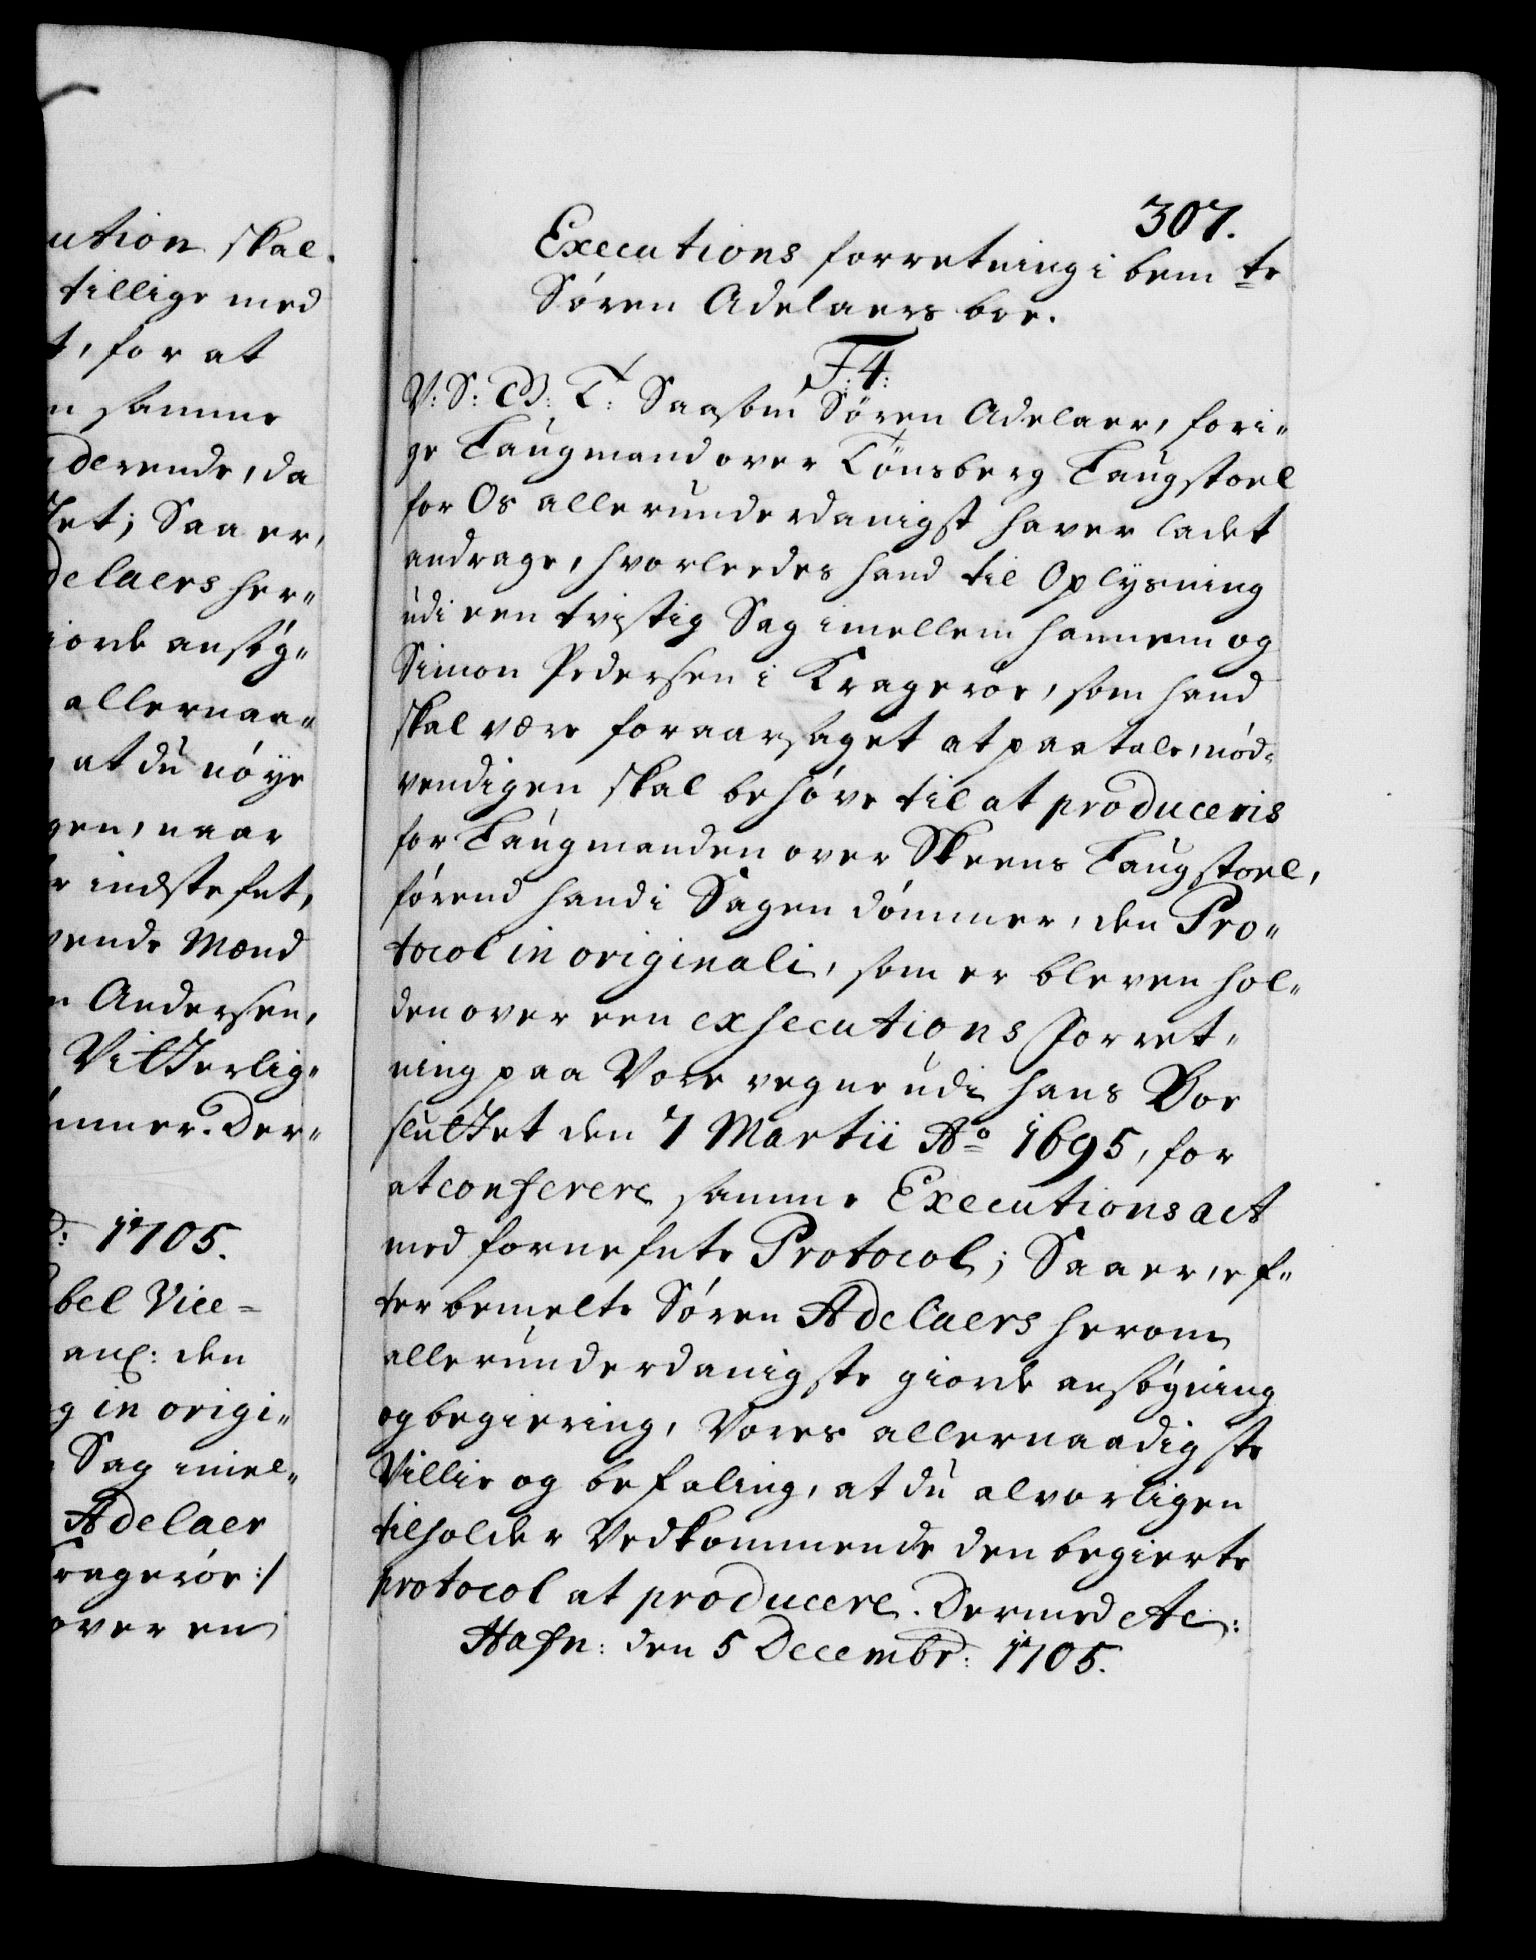 ution skal.
tillige med
t, for at
n samme
derende, da
tet; Saa er,
delaers her„
iorde ansøg„
allernaa„
at du nøye
gen, naar
r indstefnt,
vende Mænd
n Andersen,
Vitterlig„
mmer. Der„
d: 1705.
bel Vice=
anl: den
g in origi„
Sag imel„
Adelaer
ragerøe:/
over en
307.
Executions forretning i bemte
Søren Adelaers boe.
F: 4:
V: S: G: T: Saasom Søren Adelaer, fori„
ge Laugmand over Tønsberg Laugstoel
for Os allerunderdanigst haver ladet
andrage, hvorleedes hand til Oplysning
udi een tvistig Sag imellem hannem og
Simon Pedersen i Krageröe, som hand
skal være foraarsaget at paatale, nød„
vendigen skal behøve til at produceris
for Laugmanden over Skeens Laugstoel,
førend hand i Sagen dømmer, den Pro„
tocol in originali, som er bleven hol„
den over een exsecutions forret„
ning paa Vore vegne udi hans Boe
sluttet den 7 Martii Ao 1695, for
at conferere samme Executions act
med fornefnte Protocol; Saa er, ef„
ter bemelte Søren Adelaers herom
allerunderdanigste giorde ansøgning
og begiering, Vores allernaadigste
Villie og befaling, at du alvorligen
tilholder Vedkommende den begierte
protocol at producere. Dermed etc:
Hafn: den 5 Decembr: 1705.